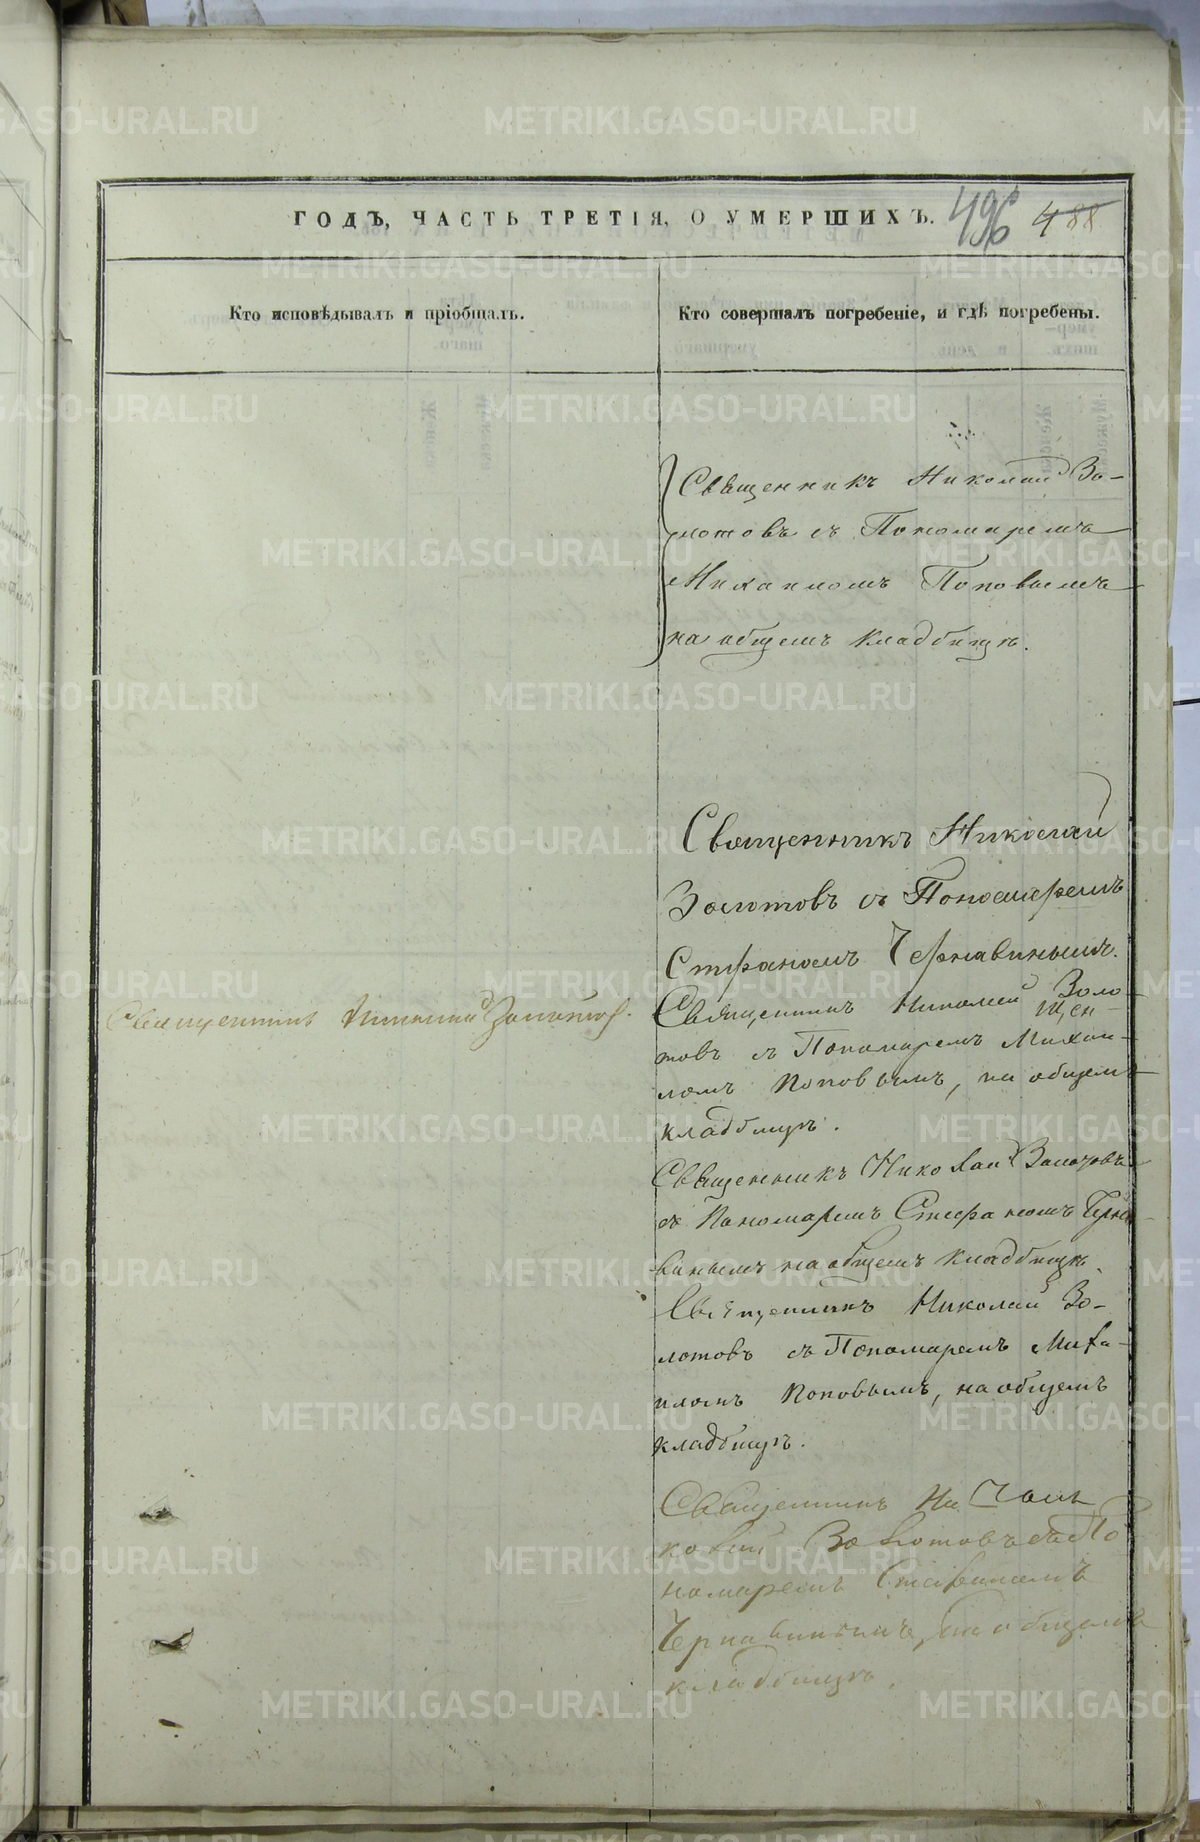 ГОДЪ, ЧАСТЬ ТРЕТІЯ, О УМЕРШИХЪ.
496 488
Кто исповѣдывалъ и пріобщалъ.
Кто совершалъ погребеніе, и гдѣ погребены.
Священникъ Николай Зо-
лотовъ съ Пономаремъ
Михаиломъ Поповымъ
на общемъ кладбищѣ.
Священникъ Николай
Золотовъ съ Пономаремъ
Стефаномъ Чернавинымъ.
Священникъ Николай Золотов.
Священникъ Николай Золо-
товъ съ Пономаремъ Михаи-
ломъ Поповымъ, на общемъ
кладбищѣ.
Священникъ Николай Золотовъ
съ Пономаремъ Стефаномъ Черна-
винымъ на общемъ кладбищѣ.
Священникъ Николай Зо-
лотовъ съ Пономаремъ Миха-
иломъ Поповымъ, на общемъ
кладбищѣ.
Священникъ Ни
колай Золотовъ съ По
номаремъ Стефаномъ
Чернавинымъ, на общемъ
кладбищѣ.
METRIKI.GASO-URAL.RU